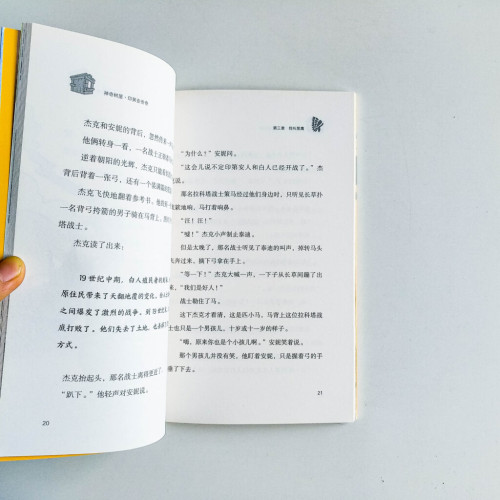 神奇树屋·
杰克和安妮的背后，忽然传来一
他俩转身一看，一名战士正
逆着朝阳的光辉，杰克只能看
背后背着一张弓，还有一个装满
杰克飞快地翻着参考书。他的
一名背弓挎箭的男子骑在马背上，
塔战士。
杰克读了出来：
19世纪中期，白人殖民者的
原住民带来了天翻地覆的变化。
之间爆发了激烈的战争。到
底打败了。他们失去了土地，也
方式。
杰克抬起头，那名战士离得更近了
“趴下。”他轻声对安妮说。
20
第三章
“为什么？”安妮问。
“这会儿说不定印第安人和白人已经开战了。”杰
说。
那名拉科塔战士策马经过他们身边时，只听见长草扑
簌地响，马打着响鼻。
“汪！汪！”
“嘘！”杰克小声制止泰迪。
但是太晚了，那名战士听见了泰迪的叫声，掉转马头
奔过来，摘下弓拿在手上。
“等一下！”杰克大喊一声，一下子从长草间蹦了出
“我们是好人！”
战士勒住了马。
这下杰克才看清，这是匹小马，马背上这位拉科塔战
只是一个男孩儿，十岁或十一岁的样子。
“嗬，原来你也是个小孩儿啊。”安妮笑着说。
那个男孩儿并没有笑。他盯着安妮，只是握着弓的手
了下去。
21